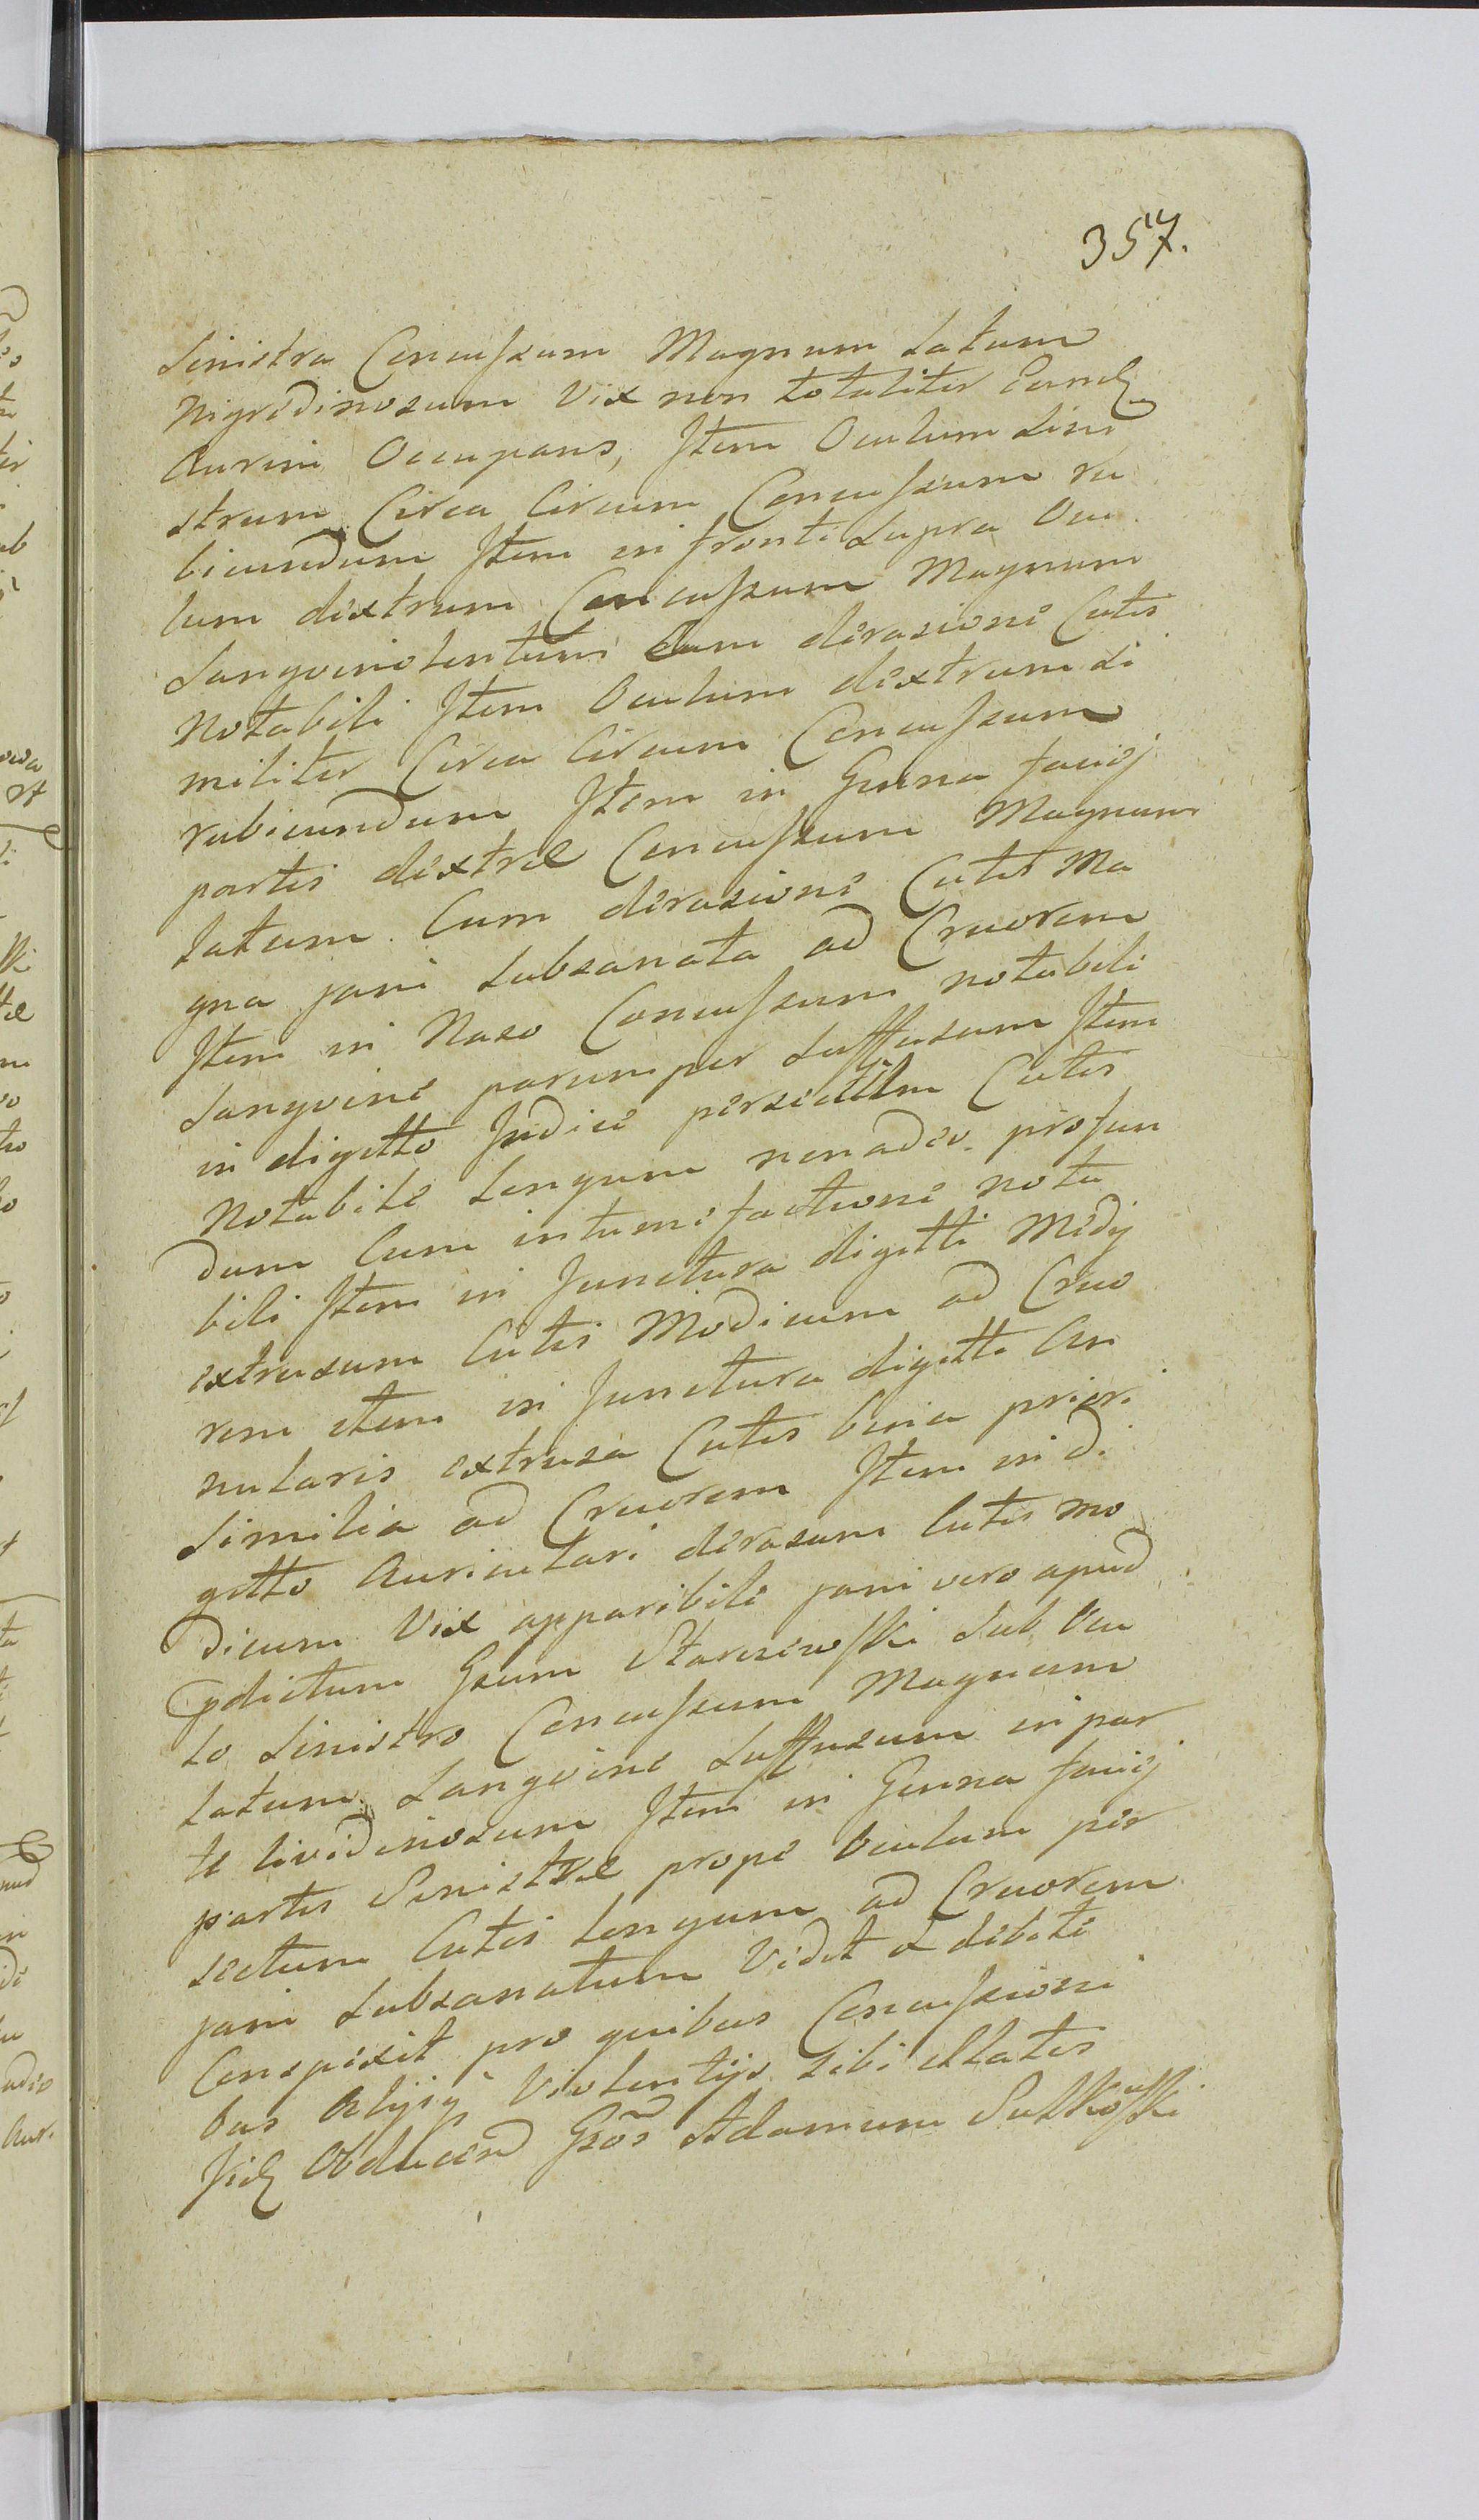 357.
Sinistra Concussum Magnum Latum
Nigredinosum Vix non totaliter Eand
Aurem Occupans, Item Oculum Sini
strum Circa Circum Concussum ru
bicundum Item in fronte Supra Ocu
lum dextrum Concussum Magnum
Sangvinolentum Cum derasione Cutis
Notabili Item Oculum dextrum Si
militer Circa Circum Concussum
rubicundum Item in Genna faciej
partis dextrae Concussum Magnum
Latum Cum derasione Cutis Ma
gna jam Subsanata ad Cruorem
Item in Naso Concussum notabili
Sangvine parumper Suffusum Item
in digitto Indice persectum Cutis
Notabile Longum nonadeo profun
dum Cum intumefactione nota
bili Item in Junctura digitti Medij
extrusum Cutis Modicum ad Cruo
rem item in Junctura digitti An
nularis extrusa Cutis bina priori
Similia ad Cruorem Item in di
gitto Auriculari derasum Cutis mo
dicum Vix apparibile jam vero apud
pdictum Gsum Starczewski Sub Ocu
lo Sinistro Concussum Magnum
Latum Sangvine Suffusum in par
te lividinosum Item in Genna faciej
partis Sinistrae prope Oculum per
sectum Cutis Longum ad Cruorem
jam Subsanatum Vidit & debite
Conspexit pro quibus Concussioni
bus Alijsq Violentijs Sibi illatis
Iid Obducend Gsos Adamum Sutkoski